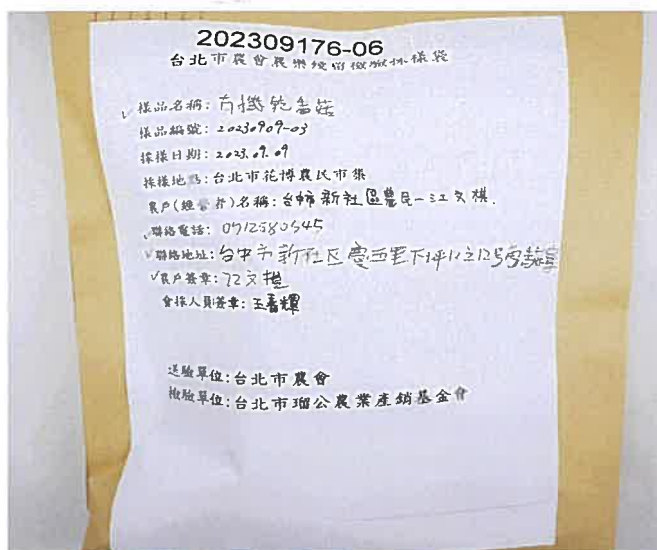 202309176-06
台北市農會農藥殘留檢驗採樣袋
樣品名稱: 有機乾香菇
樣品編號: 20230909-03
採樣日期: 2023.09.09
採樣地點: 台北市花博農民市集
農戶(經營者)名稱: 台中市新社區農民-江文棋.
聯絡電話:
聯絡地址: 台中市新社区
農戶簽章: 江文棋
會採人員簽章: 王喜耀
送驗單位: 台北市農會
檢驗單位: 台北市瑠公農業產銷基金會